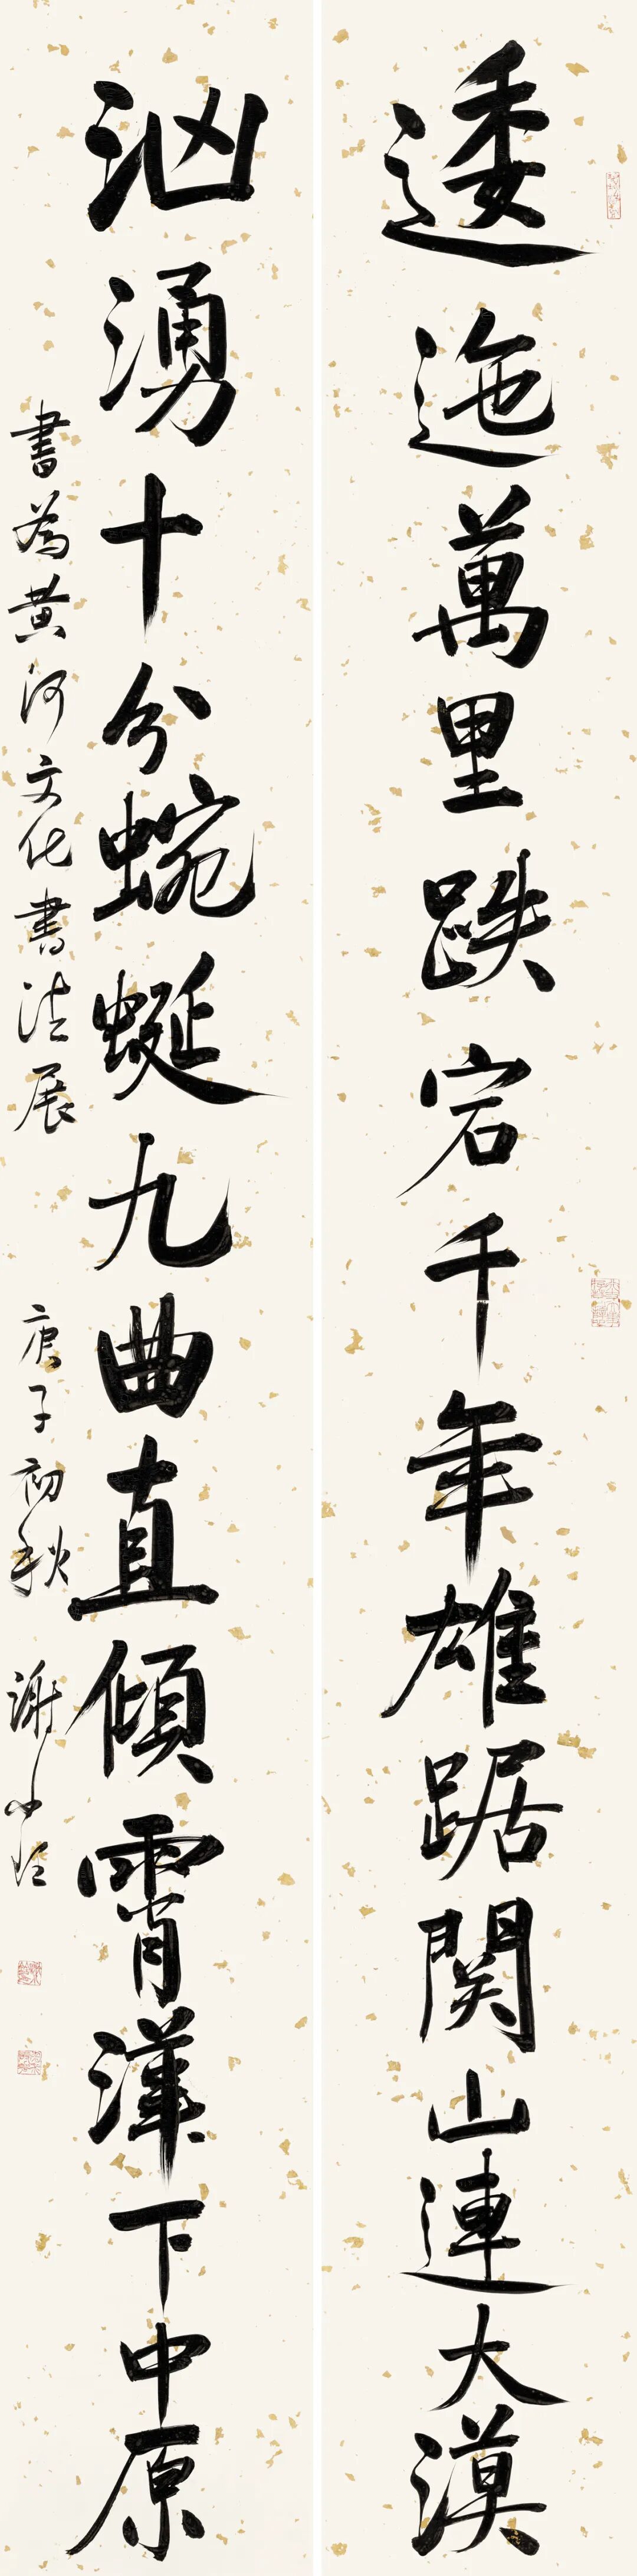 逶迤萬里跌宕千年雄踞関山連大漠
汹湧十分蜿蜒九曲直傾霄漢下中原
書為黄河文化書法展
庚子初秋
謝少承